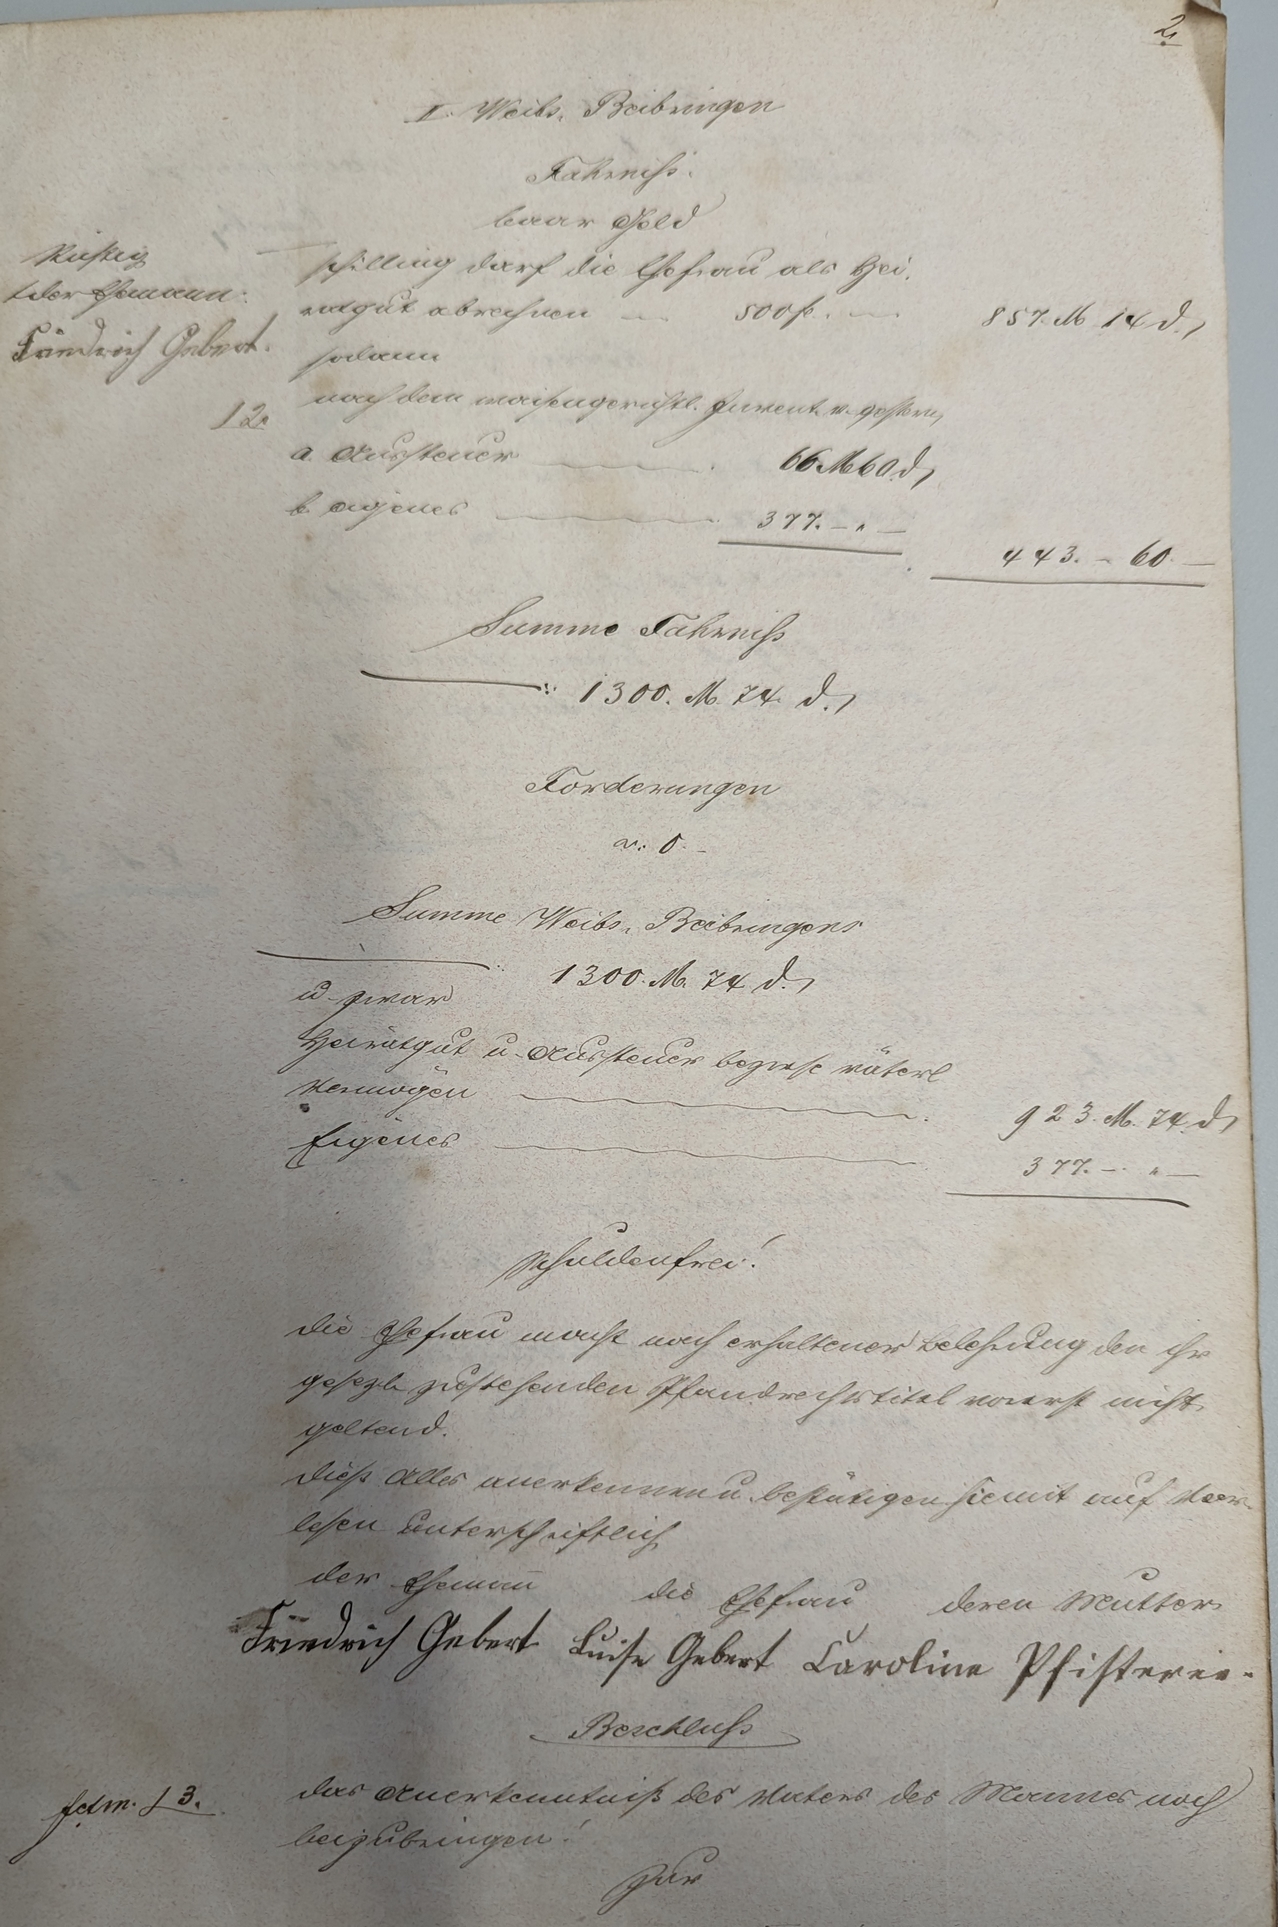 2.
II. Weibs. Beibringen
Fahrniß.
baar Geld
Richtig
t. der Ehemann:
Friedrich Gebert.
schilling darf die Ehefrau als Hei,
ratgut abrechnen 500 f. 857. M 14 d.
sodann
nach dem waisengerichtl. Invent. v. gestern,
12.
a. Aussteuer 66 M 60 d
b. eigenes 377. - " -
443. - 60 -
Summe Fahrniß
1300. M. 74 d.
Forderungen
0. -
Summe Weibs. Beibringens
1300. M. 74 d.
u. zwar
Heiratgut u. Aussteuer bezwse väterl
Vermögen 923. M. 74 d
Eigenes 377. - " -
Schuldenfrei!
die Ehefrau macht nach erhaltener Belehrung den ihr
gesezl. zustehenden Pfandrechtstitel vorerst nicht
geltend.
Dieß Alles anerkennen u. bestätigen hiemit auf Vor-
lesen unterschriftlich
der Ehemann die Ehefrau deren Mutter
Friedrich Gebert Luise Gebert Caroline Pfisterer.
Beschluß
3.
das Anerkenntniß des Vaters des Mannes noch
beizubringen!
Zur